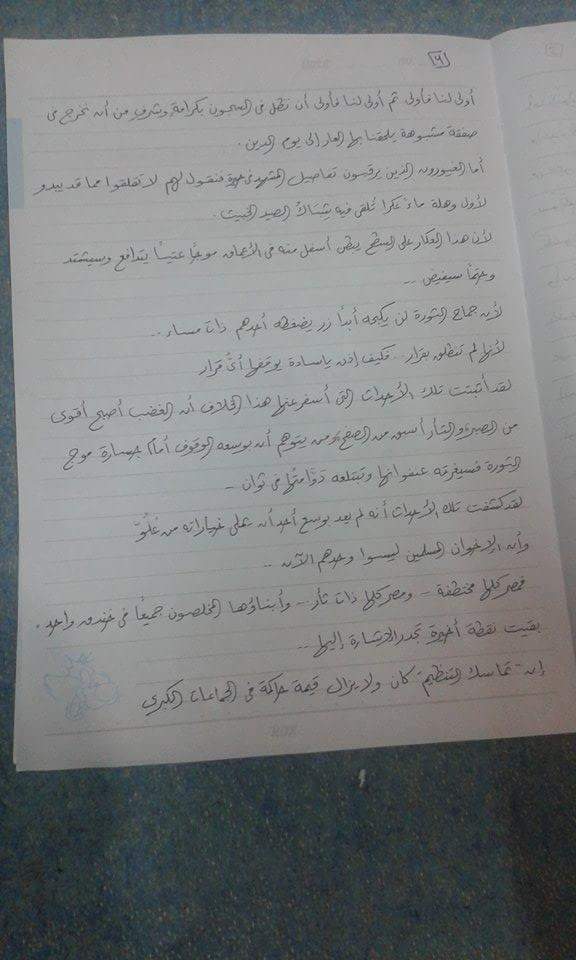 ٦
أولى لنا فأولى ثم أولى لنا فأولى أن نظل فى السجون بكرامة وشرف من أن نخرج فى
صفقة مشبوهة يلحقنا بها العار إلى يوم الدين .
أما الغيورون الذين يرقبون تفاصيل المشهد فى حيرة فنقول لهم لا تقلقوا مما قد يبدو
لأول وهلة ماءً عكرا تُلقى فيه شِبَاكُ الصيد الخبيث .
لأن هذا العكار على السطح يبطن أسفل منه فى الأعماق موجًا عتيًا يتدافع وسيشتد
وحتمًا سيفيض ..
لأن جماح الثورة لن يكبحه أبدًا زر يضغطه أحدهم ذات مساء ..
لأنها لم تنطلق بقرار .. فكيف إذن ياسادة يوقفها أىُّ قرار
لقد أثبتت تلك الأحداث التى أسفر عنها هذا الخلاف أن الغضب أصبح أقوى
من الصبر والثأر أسبق من الصفح ومن يتوهم أن بوسعه الوقوف أمام جسارة موج
الثورة فسيغرقه عنفوانها وتبتلعه دوَّامتُها فى ثوان ..
لقد كشفت تلك الأحداث أنه لم يعد بوسع أحد أن يملى خياراته من عُلُوّ
وأن الإخوان المسلمين ليسوا وحدهم الآن ..
فمصر كلها مختطفة .. ومصر كلها ذات ثأر .. وأبناؤها المخلصون جميعًا فى خندق واحد .
بقيت نقطة أخيرة تجدر الاشارة إليها ..
إن تماسك التنظيم كان ولا يزال قيمة حاكمة فى الجماعات الكبرى
ROX